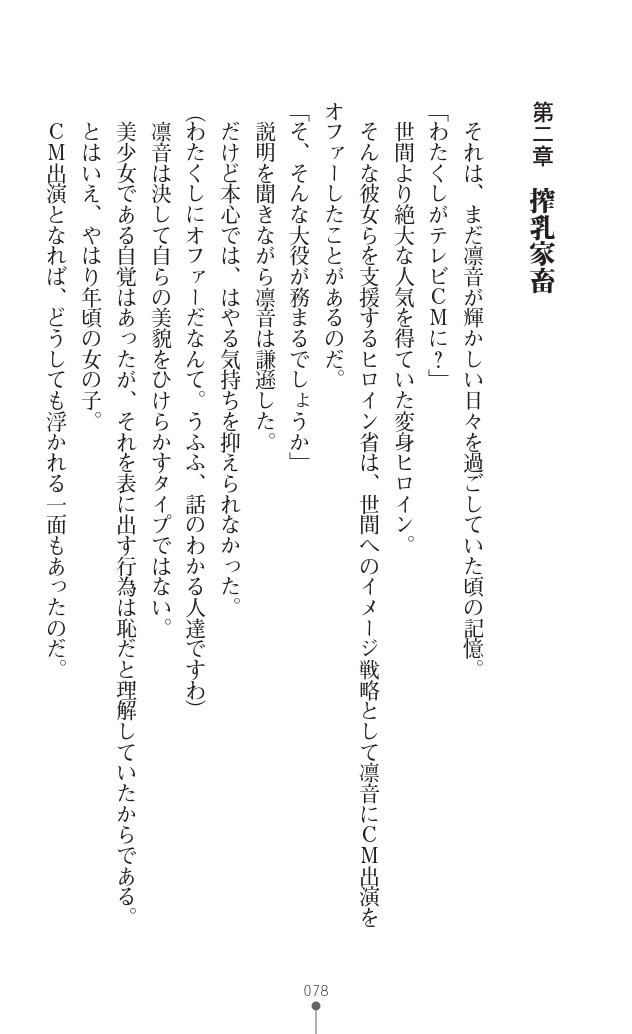 第二章　搾乳家畜
それは、まだ凛音が輝かしい日々を過ごしていた頃の記憶。
「わたくしがテレビＣＭに？」
世間より絶大な人気を得ていた変身ヒロイン。
そんな彼女らを支援するヒロイン省は、世間へのイメージ戦略として凛音にＣＭ出演を
オファーしたことがあるのだ。
「そ、そんな大役が務まるでしょうか」
説明を聞きながら凛音は謙遜した。
だけど本心では、はやる気持ちを抑えられなかった。
（わたくしにオファーだなんて。うふふ、話のわかる人達ですわ）
凛音は決して自らの美貌をひけらかすタイプではない。
美少女である自覚はあったが、それを表に出す行為は恥だと理解していたからである。
とはいえ、やはり年頃の女の子。
ＣＭ出演となれば、どうしても浮かれる一面もあったのだ。
078